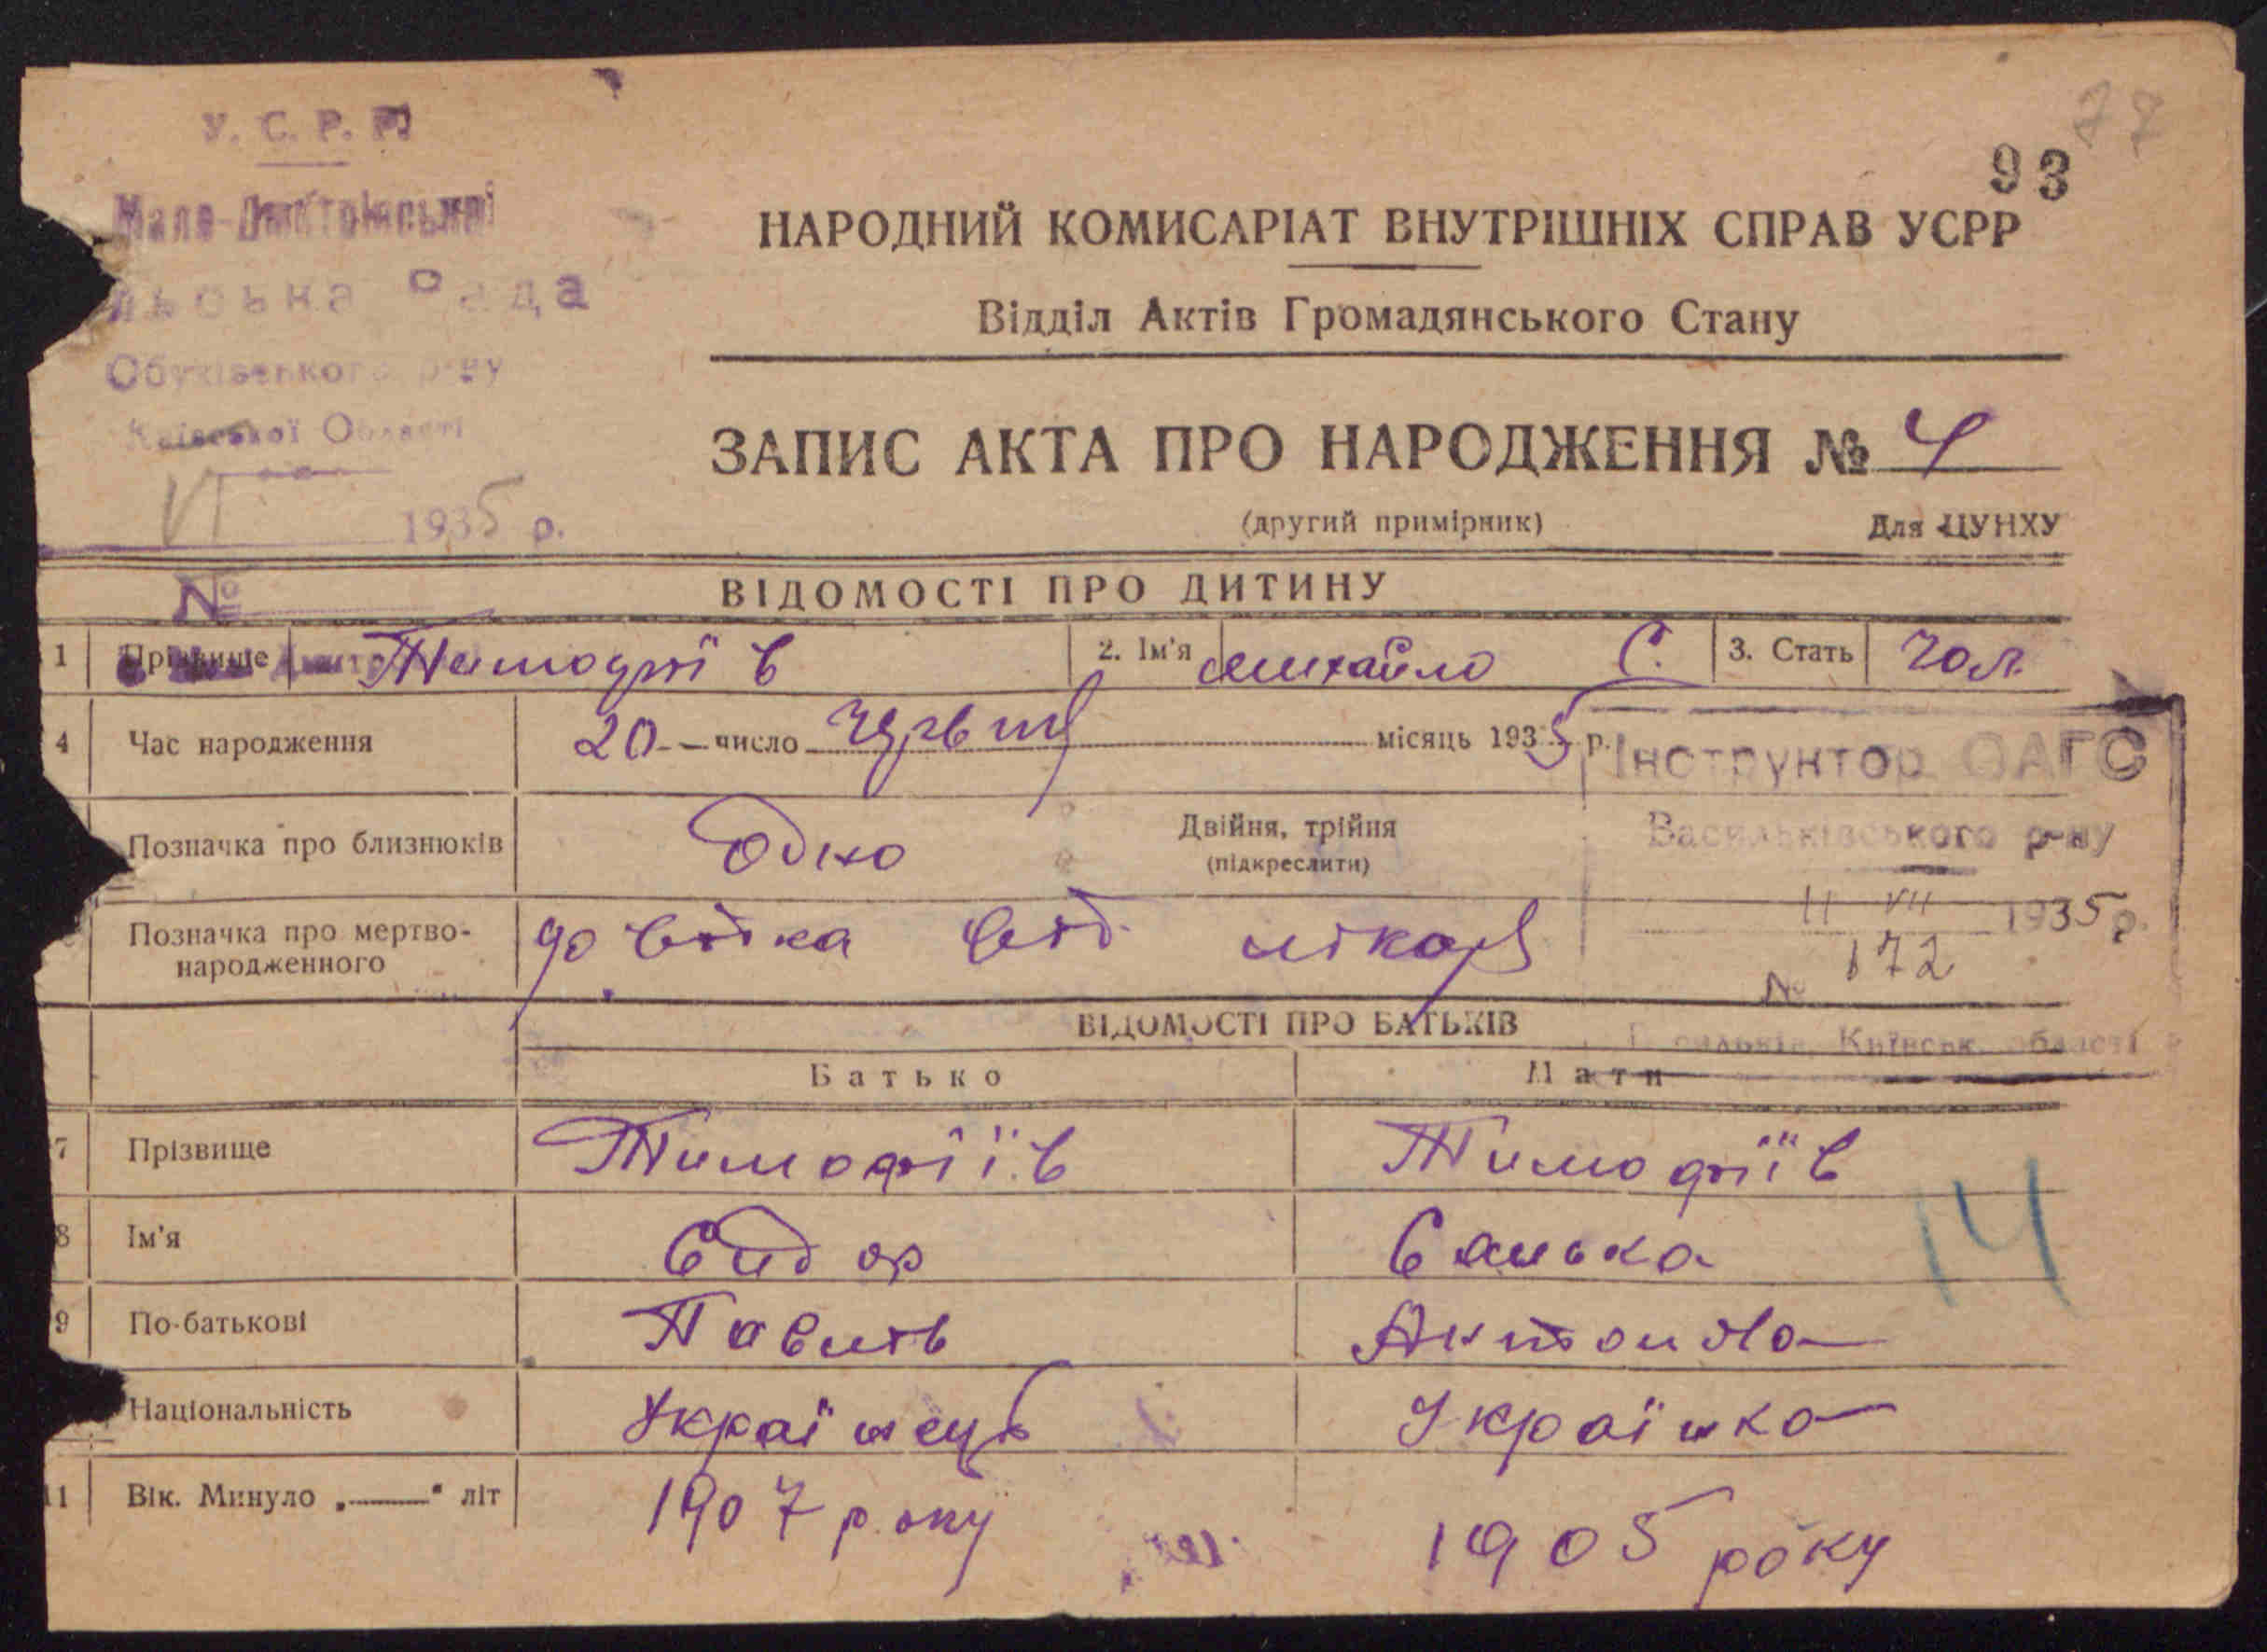 У. С. Р. Р.
Мало-Дмитрівська
льська Рада
Обухівського р-ну
Київської Області
VI 1935 р.
№
77
93
НАРОДНИЙ КОМИСАРІАТ ВНУТРІШНІХ СПРАВ УСРР
Відділ Актів Громадянського Стану
ЗАПИС АКТА ПРО НАРОДЖЕННЯ № 4
(другий примірник) Для ЦУНХУ
ВІДОМОСТІ ПРО ДИТИНУ
1 Прізвище Тимофіїв 2. Ім'я Михайло С. 3. Стать Чол.
4 Час народження 20 число Червня місяць 1935 р.
Інструктор ОАГС
Васильківського р-ну
11 VII 1935 р.
№ 172
Васильків, Київськ. області
Позначка про близнюків Одно Двійня, трійня
(підкреслити)
Позначка про мертво-
народженного довідка від лікаря
ВІДОМОСТІ ПРО БАТЬКІВ
Батько Мати
7 Прізвище Тимофіїв Тимофіїв
8 Ім'я Сидор Санька
14
9 По-батькові Павлів Антонівна
Національність Українець Українка
11 Вік. Минуло „——" літ 1907 року 1905 року